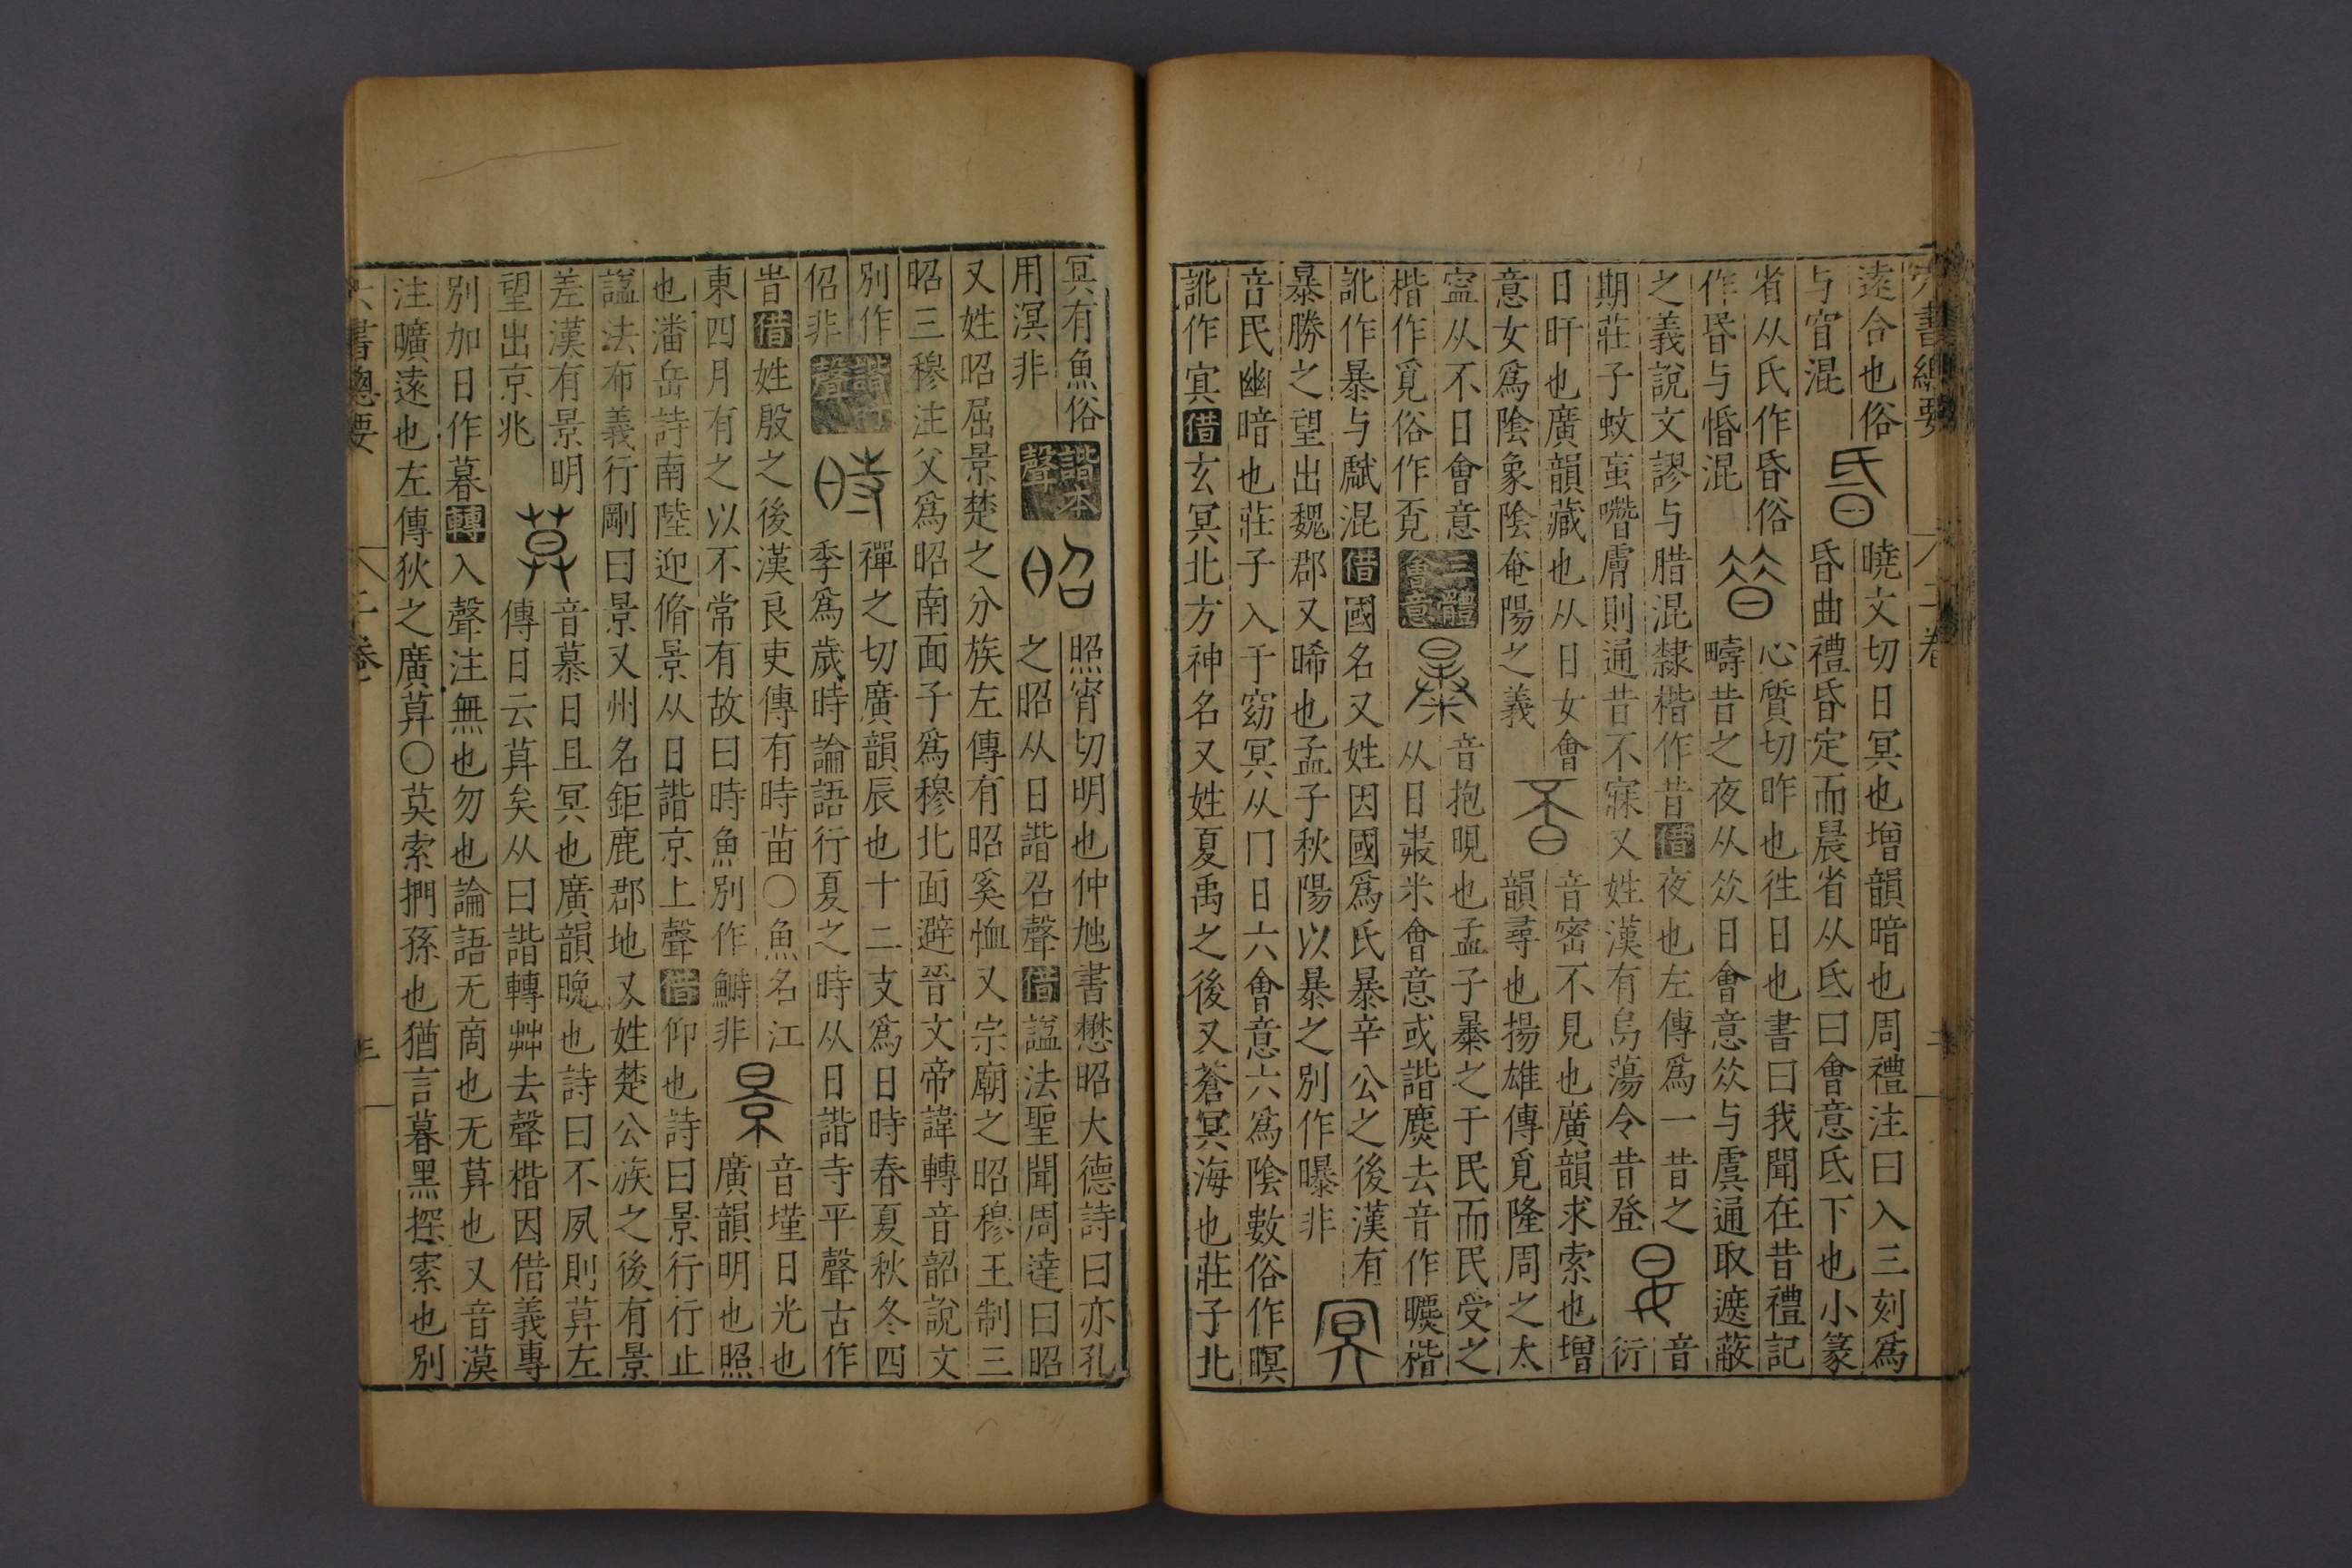 六書總要 二卷
遠合也俗
与窅混
昏
曉文切日冥也增韻暗也周禮注曰入三刻爲
昏曲禮昏定而晨省从氐日會意氐下也小篆
省从氏作昏俗
作昬与惛混
昔
心質切昨也徃日也書曰我聞在昔禮記
疇昔之夜从㸚日會意㸚与虞通取遮蔽
之義說文謬与腊混隸楷作昔借夜也左傳爲一昔之
期莊子蚊䖟噆膚則通昔不寐又姓漢有烏蕩令昔登
音
衍
日旰也廣韻藏也从日女會
意女爲陰象陰奄陽之義
音密不見也廣韻求索也增
韻尋也揚雄傳覓隆周之太
寍从不日會意
楷作覓俗作覔
三體會意
音抱晛也孟子暴之于民而民受之
从日癶米會意或諧麃去音作㬥楷
訛作暴与虣混借國名又姓因國爲氏暴辛公之後漢有
暴勝之望出魏郡又晞也孟子秋陽以暴之別作曝非
冥
音民幽暗也莊子入于窈冥从冂日六會意六爲陰數俗作暝
訛作㝠借玄冥北方神名又姓夏禹之後又蒼冥海也莊子北
冥有魚俗
用溟非
諧本聲
昭
照宵切明也仲虺書懋昭大德詩曰亦孔
之昭从日諧召聲借謚法聖聞周達曰昭
又姓昭屈景楚之分族左傳有昭奚恤又宗廟之昭穆王制三
昭三穆注父爲昭南面子爲穆北面避晉文帝諱轉音韶說文
別作
佋非
諧行聲
時
禪之切廣韻辰也十二支爲日時春夏秋冬四
季爲歲時論語行夏之時从日諧寺平聲古作
旹借姓殷之後漢良吏傳有時苗〇魚名江
東四月有之以不常有故曰時魚別作鰣非
景
音墐日光也
廣韻明也照
也潘岳詩南陸迎脩景从日諧京上聲借仰也詩曰景行行止
謚法布義行剛曰景又州名鉅鹿郡地又姓楚公族之後有景
差漢有景明
望出京兆
莫
音慕日且冥也廣韻晚也詩曰不夙則莫左
傳日云莫矣从日諧轉艸去聲楷因借義專
別加日作暮轉入聲注無也勿也論語无啇也无莫也又音漠
注曠遠也左傳狄之廣莫〇莫索捫孫也猶言暮黑探索也別
六書總要 二卷 三